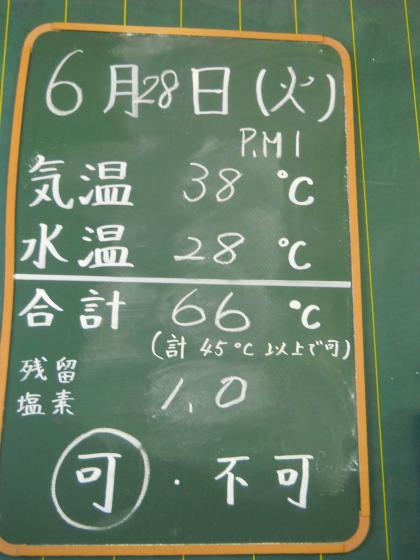 6月28日(火)
P.M1
気温 38 ℃
水温 28 ℃
合計 66 ℃
(計 45℃ 以上で可)
残留
塩素 1.0
可・不可